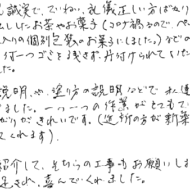 誠実で、ていねい、礼儀正しい方ばかり
出ししたお茶やお菓子（コロナ禍なのでペ
入りの個別包装のお菓子にしました。）などの
一つゴミを残さず、片付けられていた
た。
説明や、塗り方の説明などで、永遠
ました。一つ一つの作業がとても
がりがきれいです。（近所の方が新築
てくれます）
紹介して、そちらの工事もお願いしま
足され、喜んでくれました。